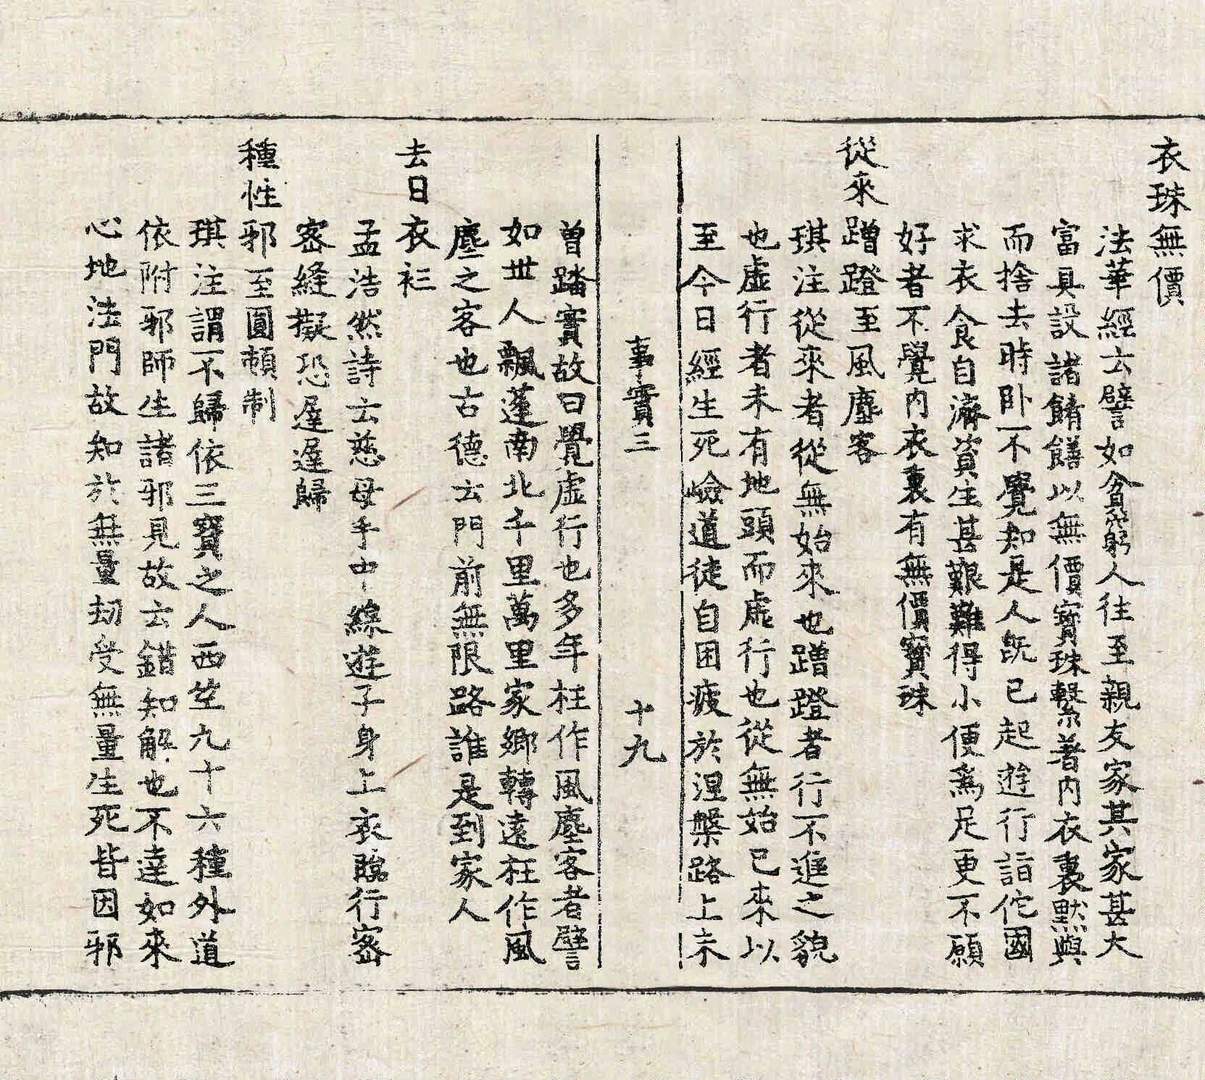 衣珠無價
法華經云譬如貧窮人往至親友家其家甚大
富具設諸餚饍以無價寶珠繫著內衣裏默與
而捨去時臥不覺知是人既已起遊行詣佗國
求衣食自濟資生甚艱難得小便爲足更不願
好者不覺內衣裏有無價寶珠
從來蹭蹬至風塵客
琪注從來者從無始來也蹭蹬者行不進之貌
也虛行者未有地頭而虛行也從無始已來以
至今日經生死嶮道徒自困疲於涅槃路上未
事實三　十九
曾踏實故曰覺虛行也多年枉作風塵客者譬
如世人飄蓬南北千里萬里家鄉轉遠枉作風
塵之客也古德云門前無限路誰是到家人
去日衣衫
孟浩然詩云慈母手中線遊子身上衣臨行密
密縫擬恐遲遲歸
種性邪至圓頓制
琪注謂不歸依三寶之人西竺九十六種外道
依附邪師生諸邪見故云錯知解也不達如來
心地法門故知於無量劫受無量生死皆因邪